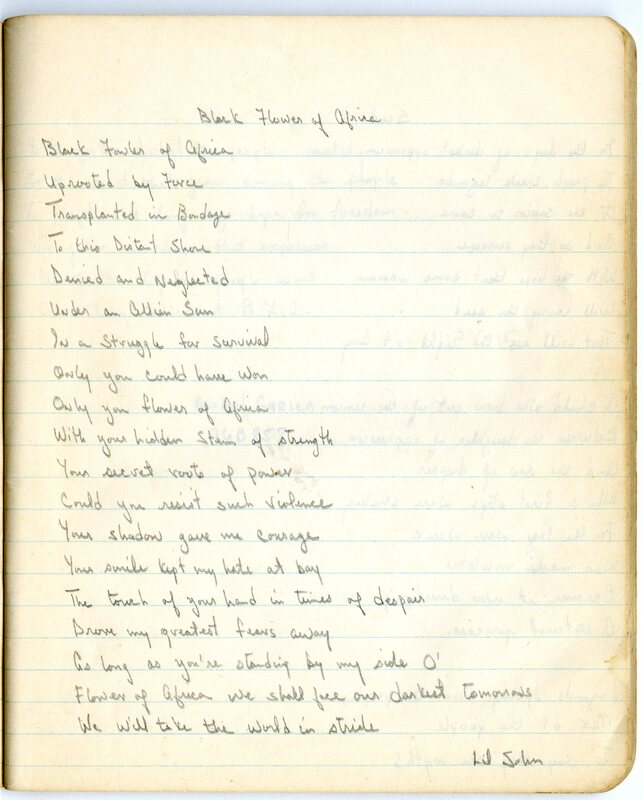 Black Flower of Africa
Black Fowler of Africa
Uprooted by Force
Transplanted in Bondage
To this Distant Shore
Denied and Neglected
Under an Allien Sun
In a Struggle for survival
Only you could have won
Only you flower of Africa
With your hidden stem of strength
Your secret roots of power
Could you resist such violence
Your shadow gave me courage
Your smile kept my hate at bay
The touch of your hand in times of despair
Drove my greatest fears away
As long as you're standing by my side O'
Flower of Africa we shall face our darkest tomorrows
We will take the world in stride
Lil John